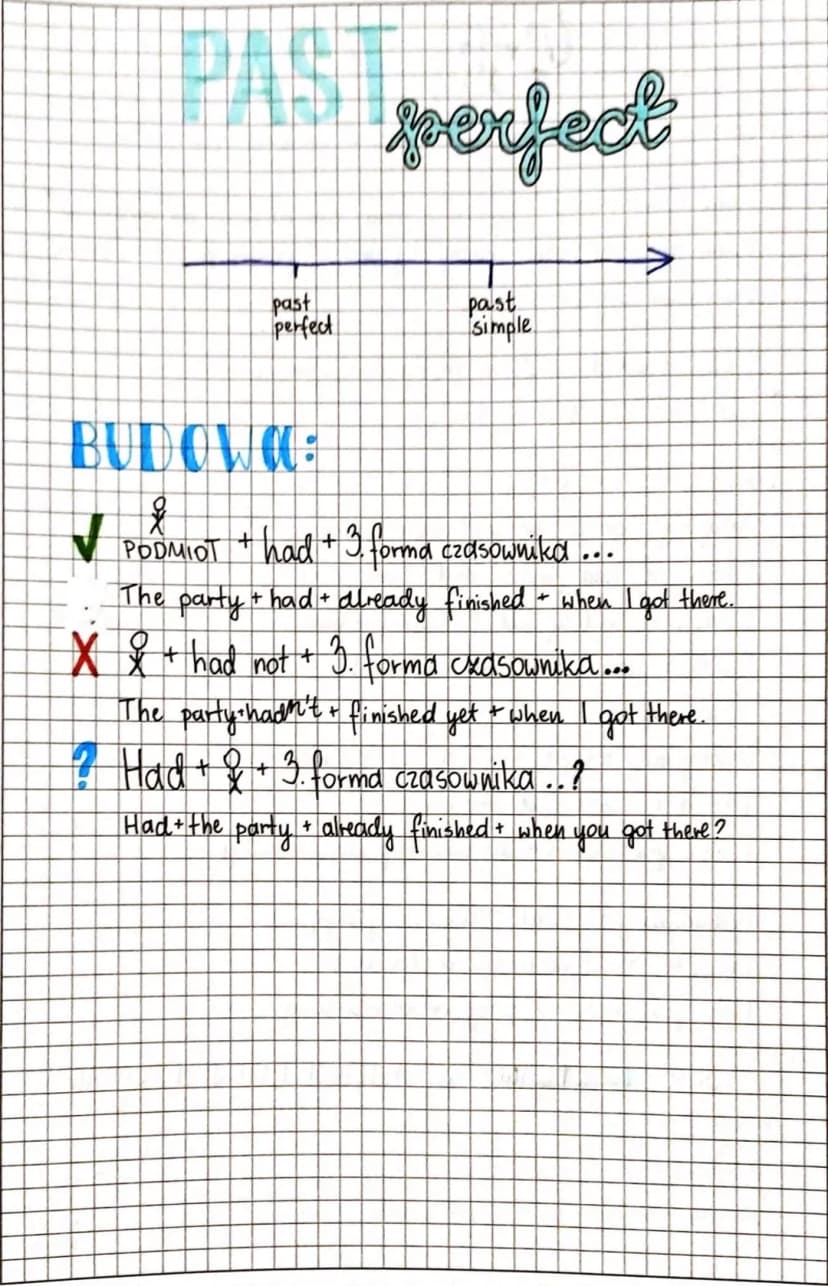 PAST
perfect
past past
perfect simple
BUDOWA:
PODMIOT + had + 3. forma czasownika ...
The party + had + already finished + when I got there.
X + had not + 3. forma czasownika...
The party + hadn't + finished yet + when I got there.
? Had + + 3. forma czasownika ..?
Had + the party + already finished + when you got there?